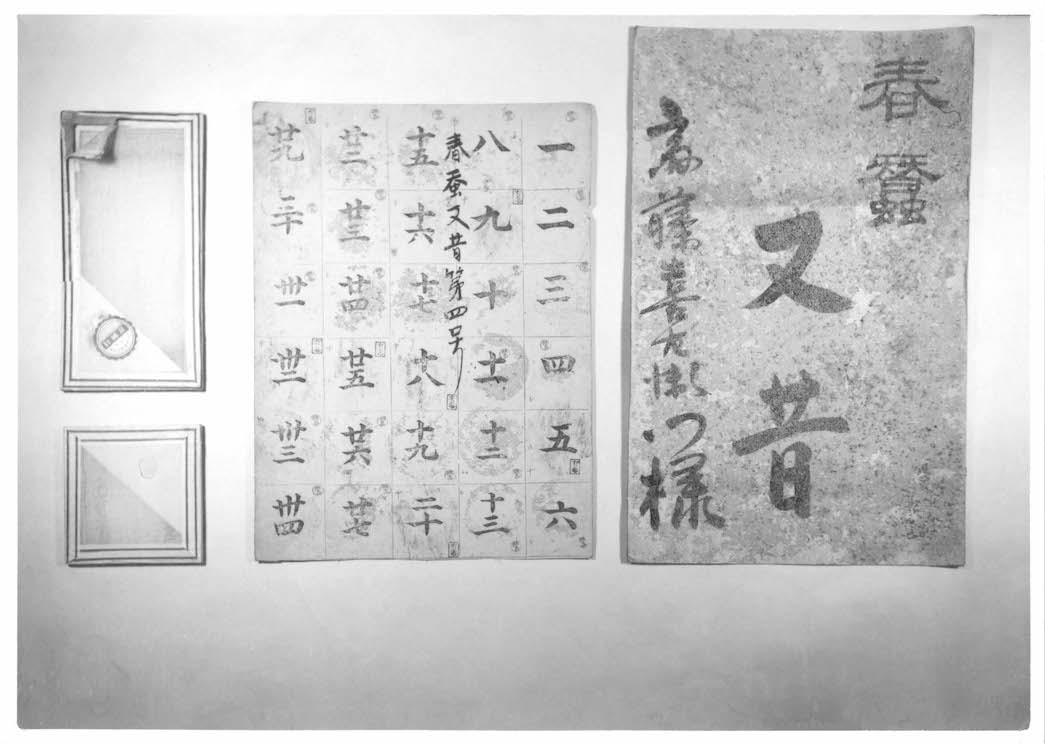 春蠶
又昔
斎藤喜左衛門様
一
二
三
四
五
六
八
九
十
十一
十二
十三
春蚕又昔第四号
十五
十六
十七
十八
十九
二十
廿二
廿三
廿四
廿五
廿六
廿七
廿九
三十
卅一
卅二
卅三
卅四